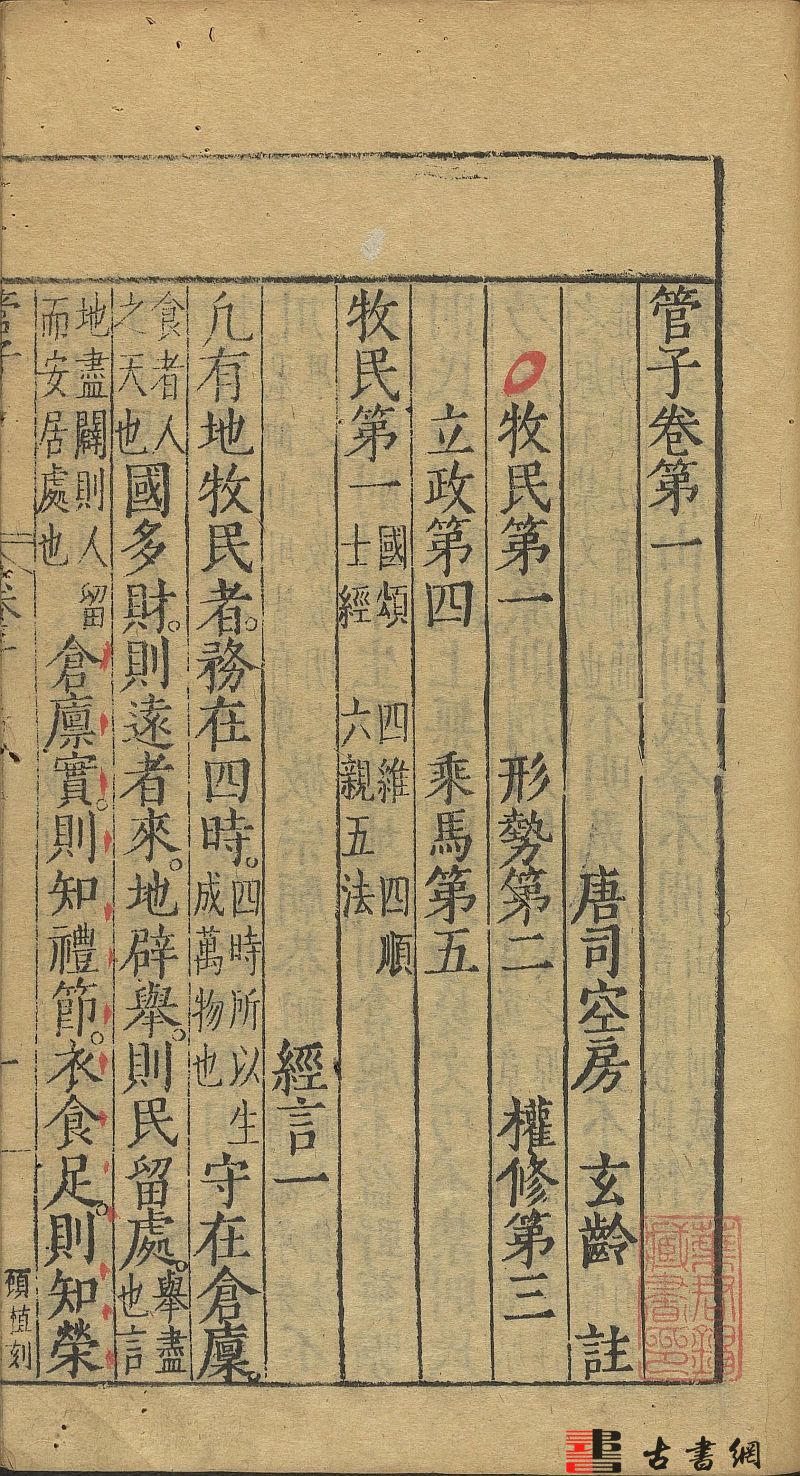 管子卷第一
唐司空房 玄齡 註
牧民第一 形勢第二 權修第三
立政第四 乘馬第五
牧民第一 國頌 四維 四順 士經 六親五法
經言一
凢有地牧民者。務在四時。四時所以生成萬物也守在倉廪。
食者人之天也國多財。則遠者來。地辟舉。則民留處。舉盡也言
地盡闢則人留而安居處也倉廪實。則知禮節。衣食足。則知榮
管子
一
顧植刻
古書網